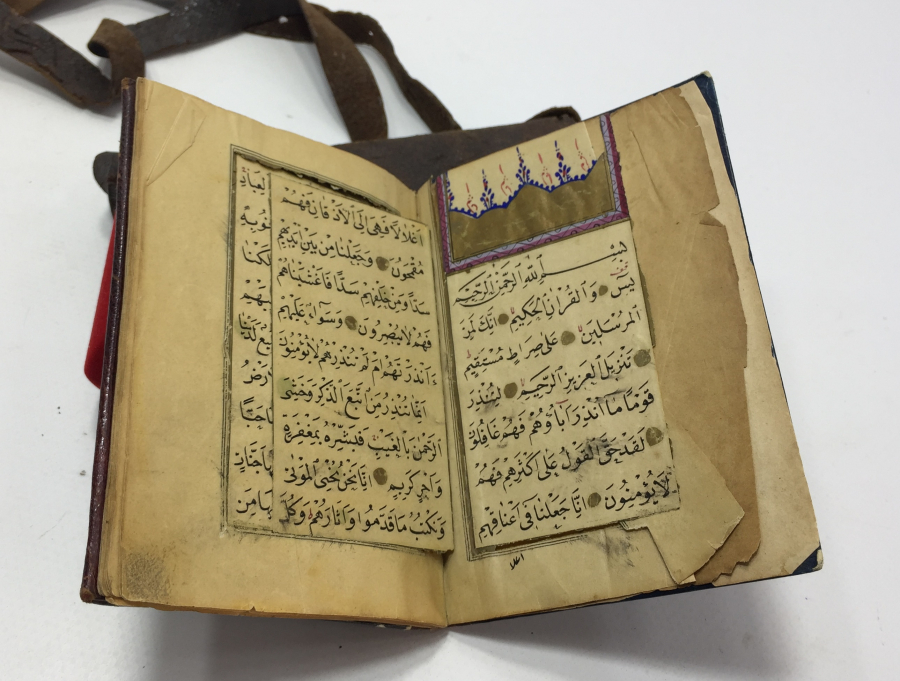 بِسْمِ اللهِ الرَّحْمٰنِ الرَّحِيمِ
يٰسٓ وَالْقُرْاٰنِ الْحَكِيمِ اِنَّكَ لَمِنَ
الْمُرْسَلِينَ عَلٰى صِرَاطٍ مُسْتَقِيمٍ
تَنْزِيلَ الْعَزِيزِ الرَّحِيمِ لِتُنْذِرَ
قَوْمًا مَا اُنْذِرَ اٰبَاؤُهُمْ فَهُمْ غَافِلُونَ
لَقَدْ حَقَّ الْقَوْلُ عَلٰى اَكْثَرِهِمْ فَهُمْ
لَا يُؤْمِنُونَ اِنَّا جَعَلْنَا فِى اَعْنَاقِهِمْ
اغلا
اَغْلَالًا فَهِىَ اِلَى الْاَذْقَانِ فَهُمْ
مُقْمَحُونَ وَجَعَلْنَا مِنْ بَيْنِ اَيْدِيهِمْ
سَدًّا وَمِنْ خَلْفِهِمْ سَدًّا فَاَغْشَيْنَاهُمْ
فَهُمْ لَا يُبْصِرُونَ وَسَوَاءٌ عَلَيْهِمْ
ءَاَنْذَرْتَهُمْ اَمْ لَمْ تُنْذِرْهُمْ لَا يُؤْمِنُونَ
اِنَّمَا تُنْذِرُ مَنِ اتَّبَعَ الذِّكْرَ وَخَشِىَ
الرَّحْمٰنَ بِالْغَيْبِ فَبَشِّرْهُ بِمَغْفِرَةٍ
وَاَجْرٍ كَرِيمٍ اِنَّا نَحْنُ نُحْيِى الْمَوْتٰى
وَنَكْتُبُ مَا قَدَّمُوا وَاٰثَارَهُمْ وَكُلَّ